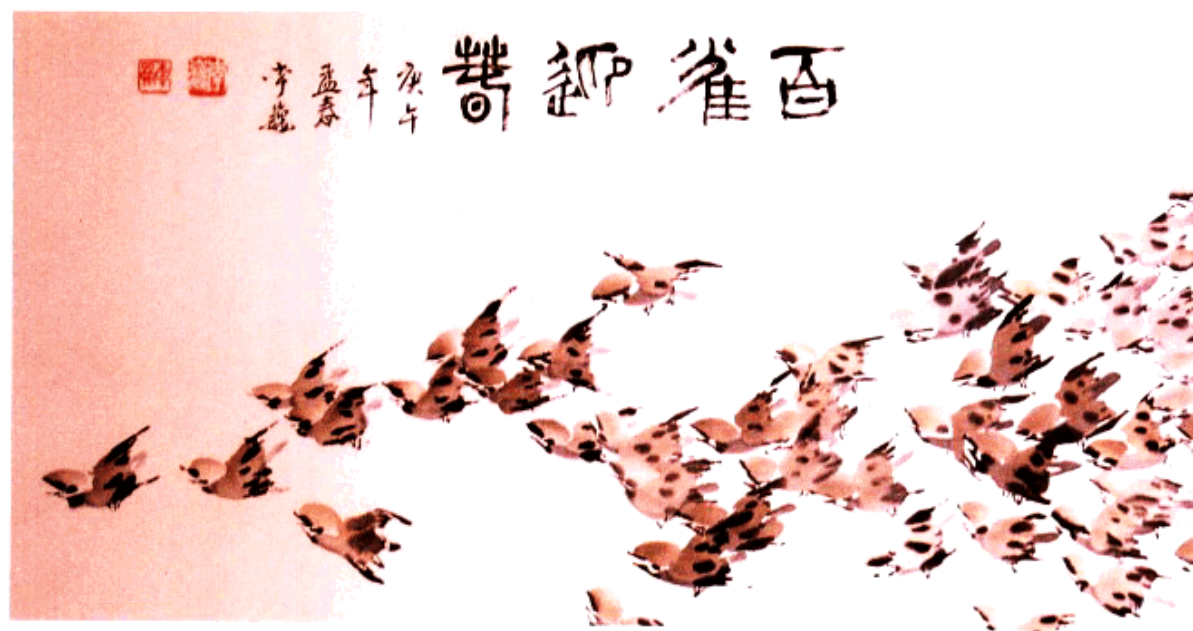 百雀迎春
庚午
年
孟春